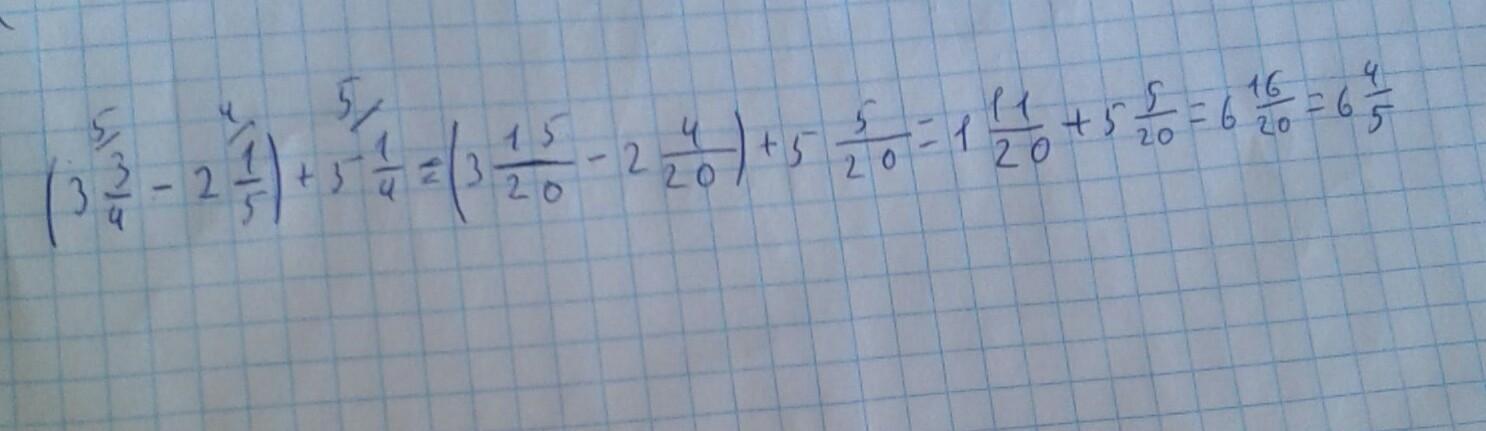 (3 3/4 - 2 1/5) + 5 1/4 = (3 15/20 - 2 4/20) + 5 5/20 = 1 11/20 + 5 5/20 = 6 16/20 = 6 4/5